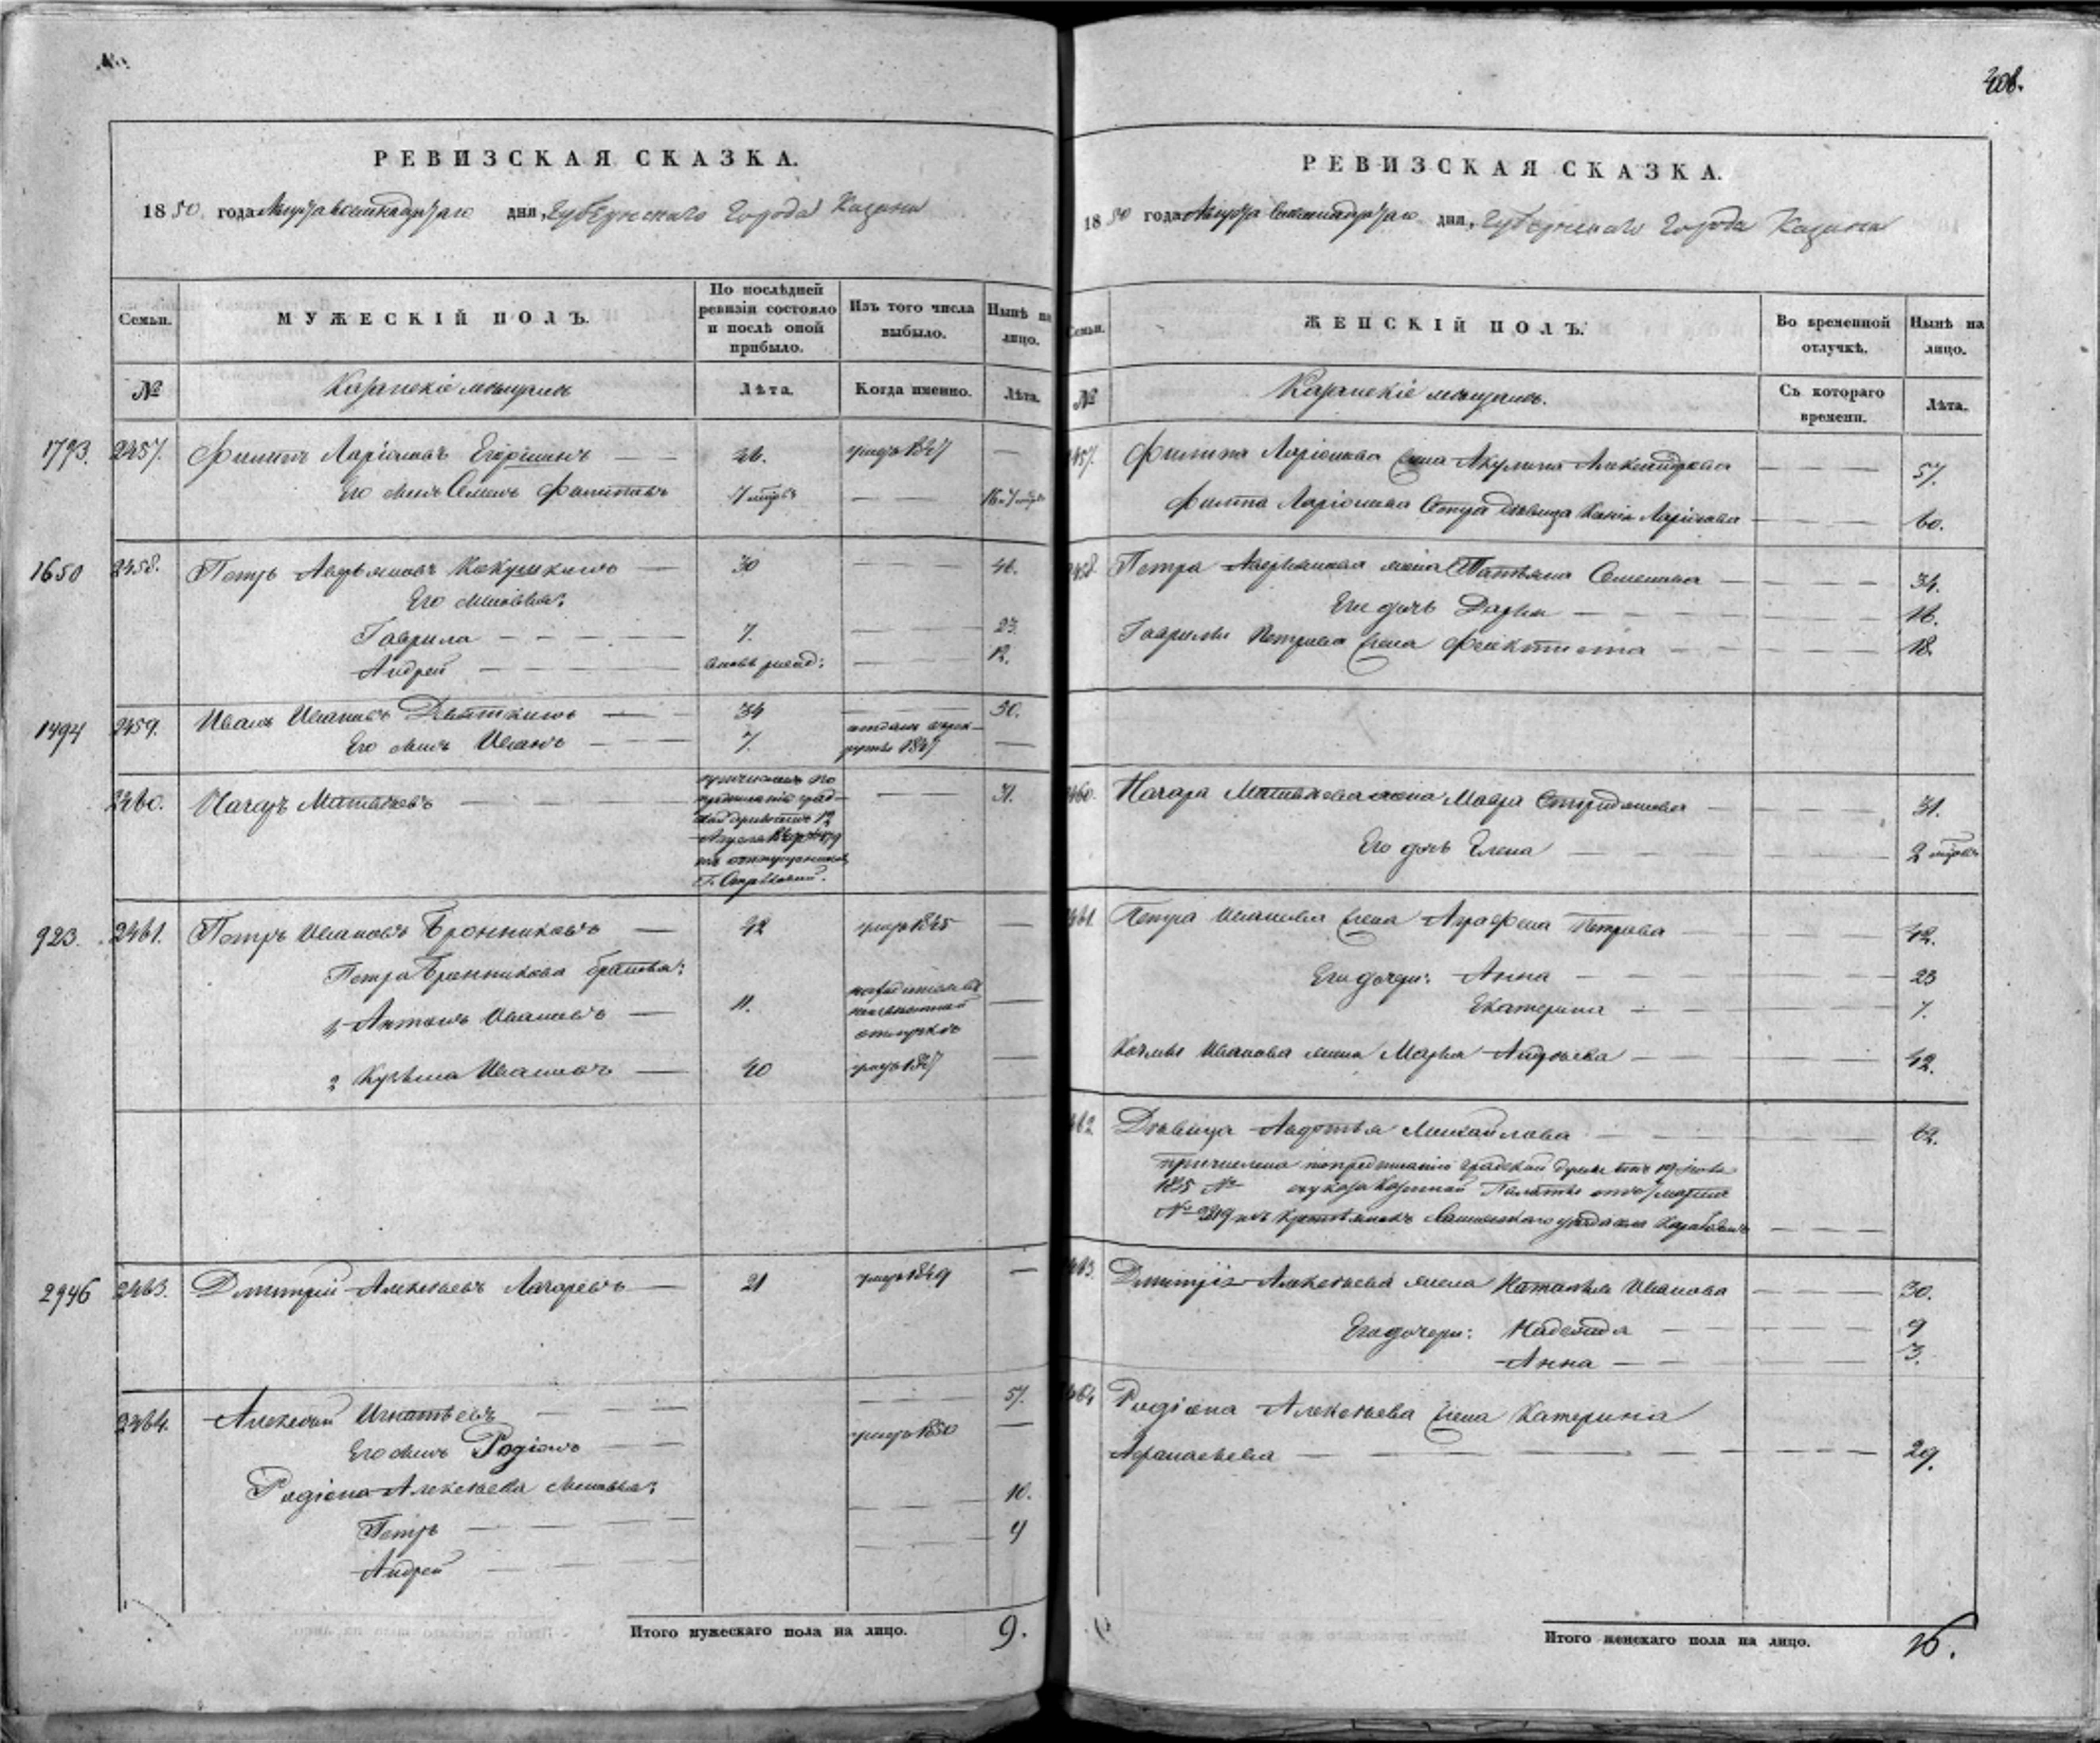 408.
РЕВИЗСКАЯ СКАЗКА.
1850 года Марта восемнадцатаго дня, Губернскаго Города Казани
Семьи.
МУЖЕСКІЙ ПОЛЪ.
По послѣдней ревизіи состояло и послѣ оной прибыло.
Изъ того числа выбыло.
Нынѣ на лицо.
№
Казанскіе мѣщане
Лѣта.
Когда именно.
Лѣта.
1793. 2457. Филипъ Ларіоновъ — 46. умеръ 1847 —
Его сынъ Семенъ — —
1650 2458. Петръ Андреяновъ Кокушкинъ — 30 — 46.
Его сыновья:
Гаврила — 7. — 23.
Андрей — вновь рожд: — 12.
1494 2459. Иванъ Ивановъ — 34 — 50.
Его сынъ Иванъ — 7. отданъ въ рекруты 1847 —
2460. Назаръ Матвѣевъ — причисленъ по — 31.
923. 2461. Петръ Ивановъ Бронниковъ — 42 умеръ 1845 —
Петра Бронникова братья:
1, Антонъ Ивановъ — 11. отлучкѣ —
2 Кузьма Ивановъ — 40 умеръ 1847 —
2946 2463. Дмитрій Алексѣевъ Лазаревъ — 21 умеръ 1849 —
2464. Алексѣй Игнатьевъ — 57.
Его сынъ Родіонъ — умеръ 1850 —
Родіона Алексѣева сыновья:
Петръ — 10.
Андрей — 4
Итого мужескаго пола на лицо. 9.
РЕВИЗСКАЯ СКАЗКА.
1850 года Марта восемнадцатаго дня, Губернскаго Города Казани
Семьи.
ЖЕНСКІЙ ПОЛЪ.
Во временной отлучкѣ.
Нынѣ на лицо.
№
Казанскіе мѣщане.
Съ котораго времени.
Лѣта.
2457. Филипа Ларіонова жена Акулина Александрова — 57.
Филипа Ларіонова Сестра дѣвица Ларіонова — 60.
2458. Петра Андреянова жена Татьяна Семенова — 34.
Его дочь Дарья — 16.
Гаврилы Петрова жена Феоктиста — 18.
2460. Назара Матвѣева жена Мавра Спиридонова — 31.
Его дочь Елена — 2 мѣсяц
2461. Петра Иванова жена Аграфена Петрова — 42.
Его дочери: Анна — 23
Екатерина — 7.
Козьмы Иванова жена Марья Андреева — 42.
2462 Дѣвица Авдотья Михайлова — 62.
причислена по предписанію Градской Думы отъ 19
1835 № указа Казенной Палаты отъ 7 марта
№ 2819 изъ крестьянокъ уѣзда села
2463. Дмитрія Алексѣева жена Наталья Иванова — 30.
Его дочери: Надежда — 9
Анна — 3.
2464 Родіона Алексѣева жена Катерина
Афанасьева — 29.
Итого женскаго пола на лицо. 16.